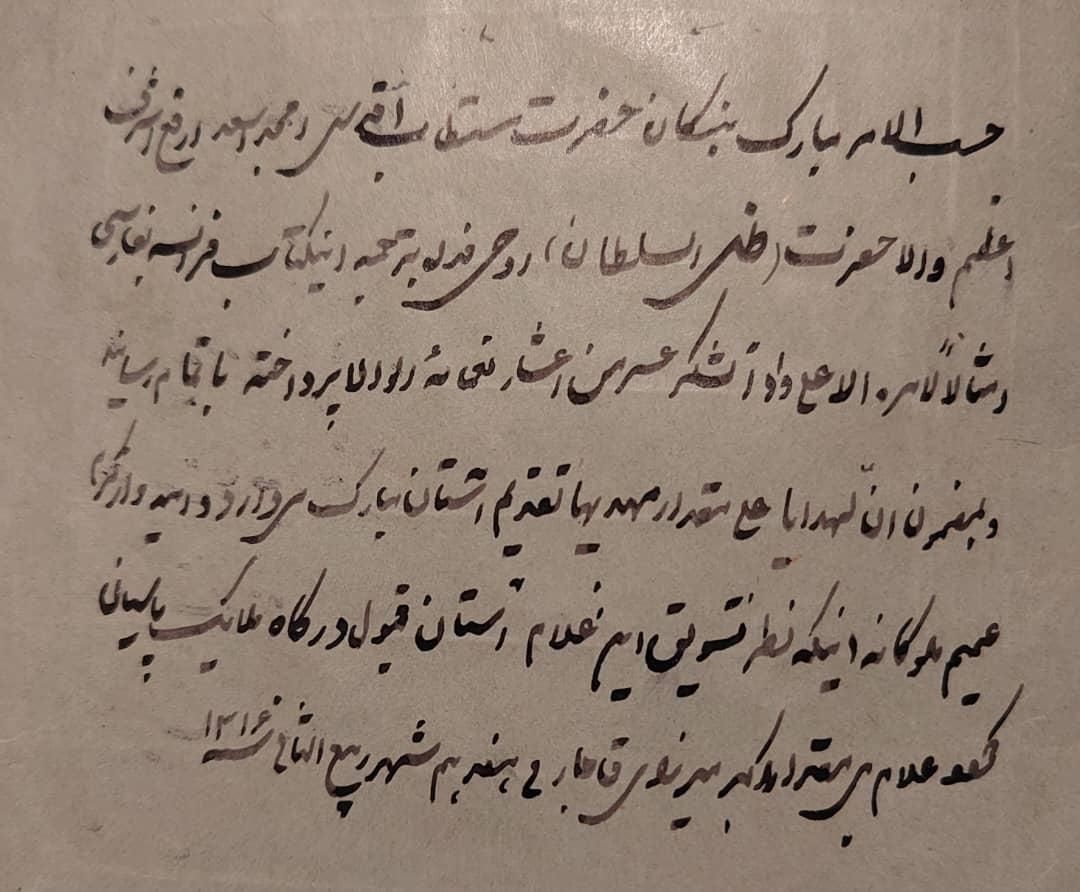 حسب الامر مبارک بندگان حضرت مستطاب اقدس امجد اسعد ارفع اشرف
اعظم والا حضرت (ظل السلطان) روحی فداه بترجمه اینکتاب فرانسه بفارسی
امتثالاً لامره الاعلی و اداءً لشکر عشر من اعشار نعمائه پرداخته باتمام رسانید
و بمضمون انّ الهدایا علی مقدار مهدیها تقدیم آستان مبارک میدارد و امید وار کرم
عمیم ملوکانه اینکه نظر بتشویق این غلام آستان قبول درگاه ملایک پاسبان
غلام بی مقدار اکبر میرزای قاجار فی هفدهم شهر ربیع الثانی سنه ۱۳۱۶